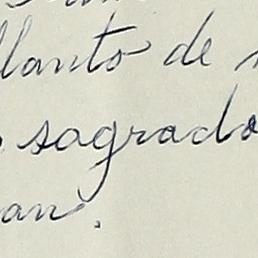 llanto de
sagrado
an.